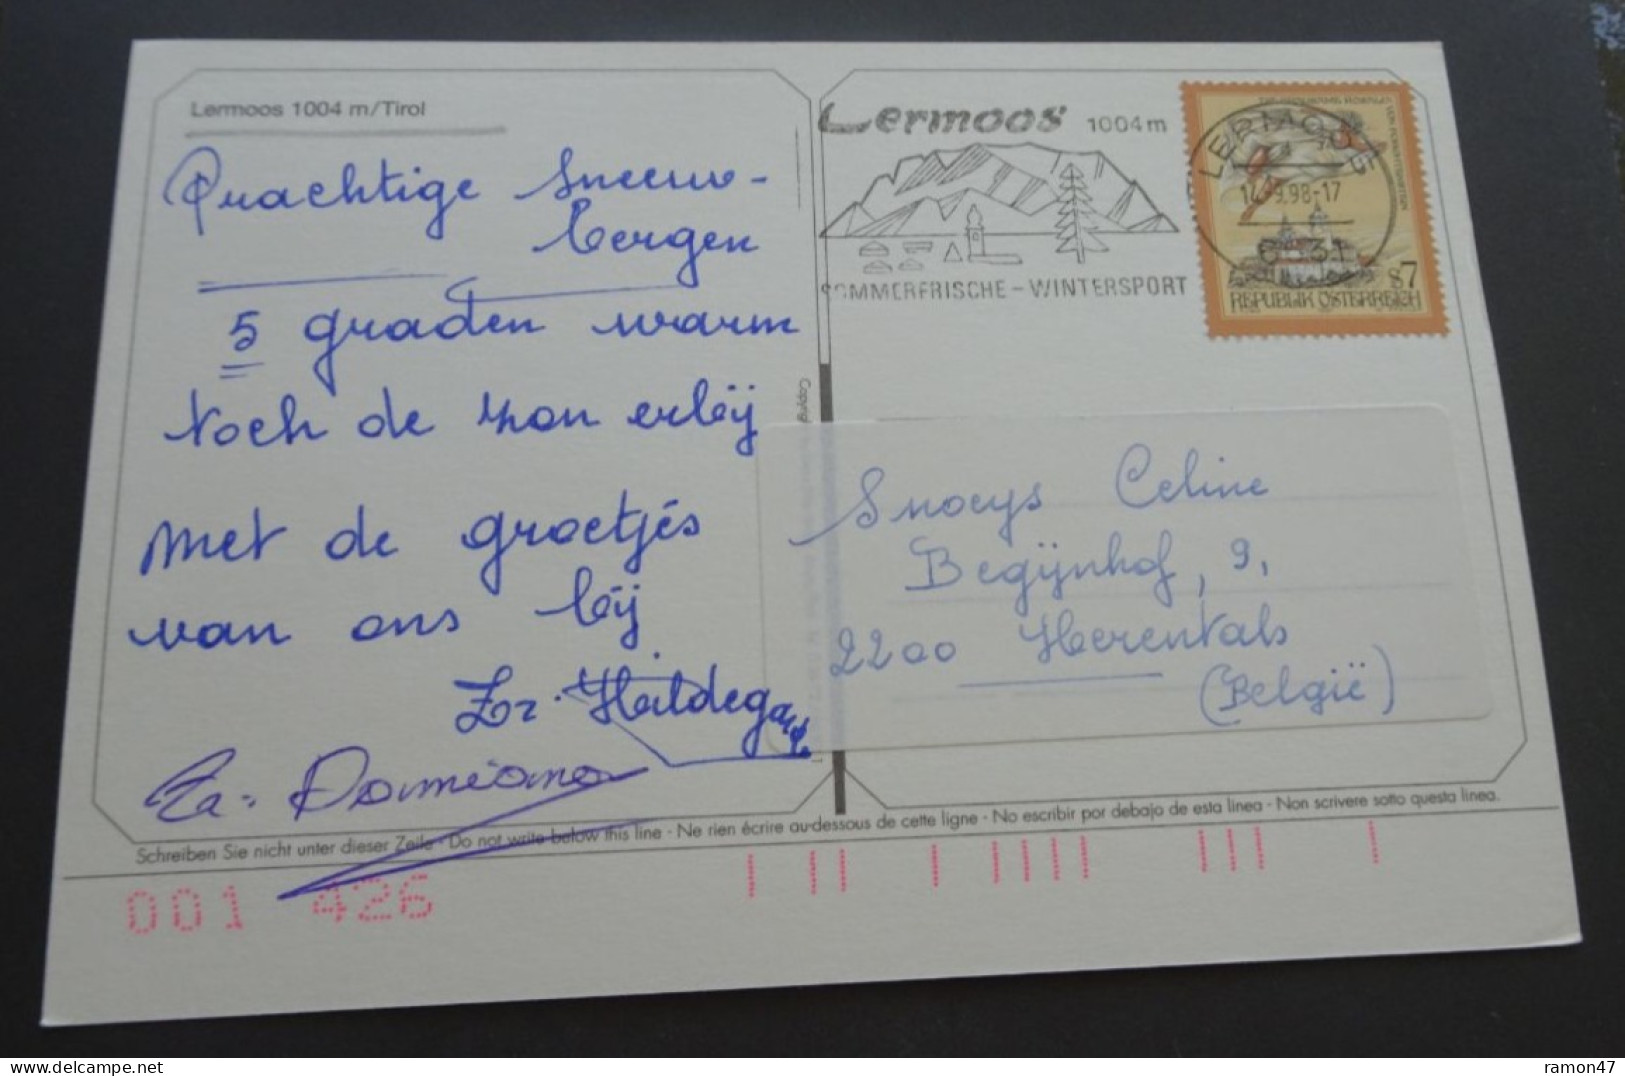 Lermoos 1004 m/Tirol
Prachtige sneeuw-
bergen
5 graden warm
toch de zon erbij
Met de groetjes
van ons bij
Zr. Hildegard
Za. Damiana
Lermoos 1004m
SOMMERFRISCHE - WINTERSPORT
LERMOOS
14.9.98-17
6631
S7
REPUBLIK ÖSTERREICH
Snoeys Celine
Begijnhof, 9,
2200 Herentals
(België)
Schreiben Sie nicht unter dieser Zeile · Do not write below this line · Ne rien écrire au-dessous de cette ligne · No escribir por debajo de esta linea · Non scrivere sotto questa linea.
001 426
ramon47